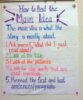 How to find the
Main Idea
The main idea is what the
story is mostly about.
1. Ask yourself, what did I just
read about?
2. Look at the title
3. Look at the pictures
4. Look for details that
5. Reread the first and last
sentences/paragraphs